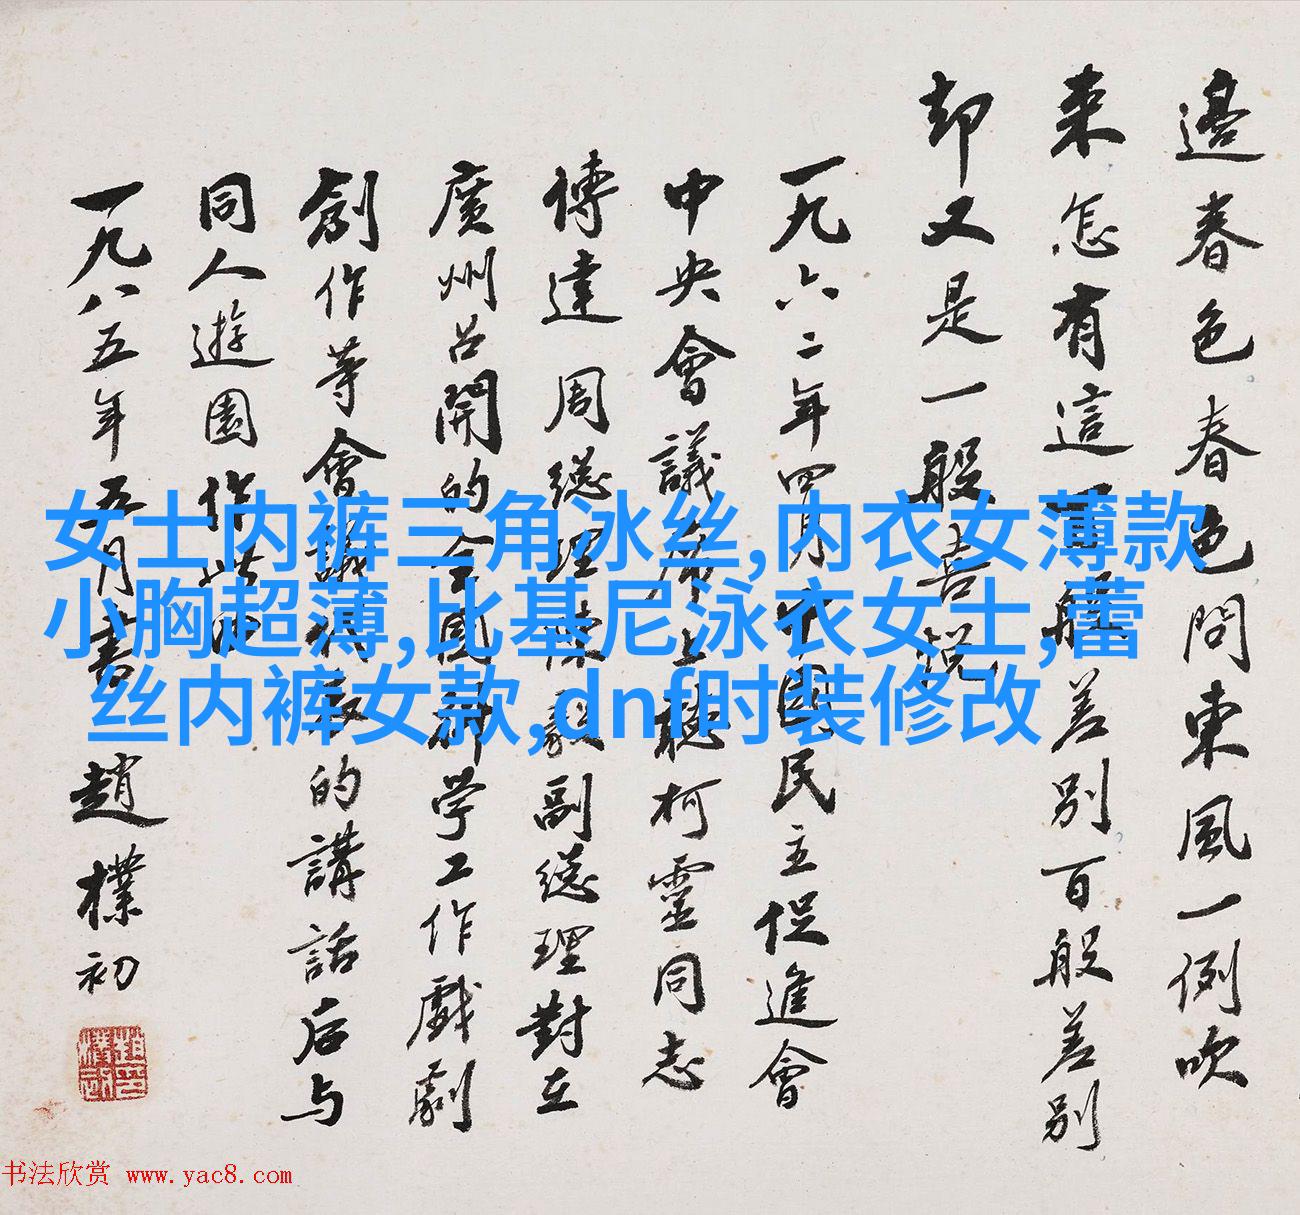 邊春色春色問東風一例吹
來怎有這百般差別百般差別
却又是一般喜悅
一九六二年四月中國民主促進會
中央會議席上聽柯靈同志
傳達周總理陳毅副總理對在
廣州召開的全國科学工作戲劇
創作等會議精神的講話后与
同人遊園作此曲
一九八五年五月書趙樸初
女士内裤三角冰丝,内衣女薄款
小胸超薄,比基尼泳衣女士,蕾
丝内裤女款,dnf时装修改
趙樸初印
书法欣赏 www.yac8.com